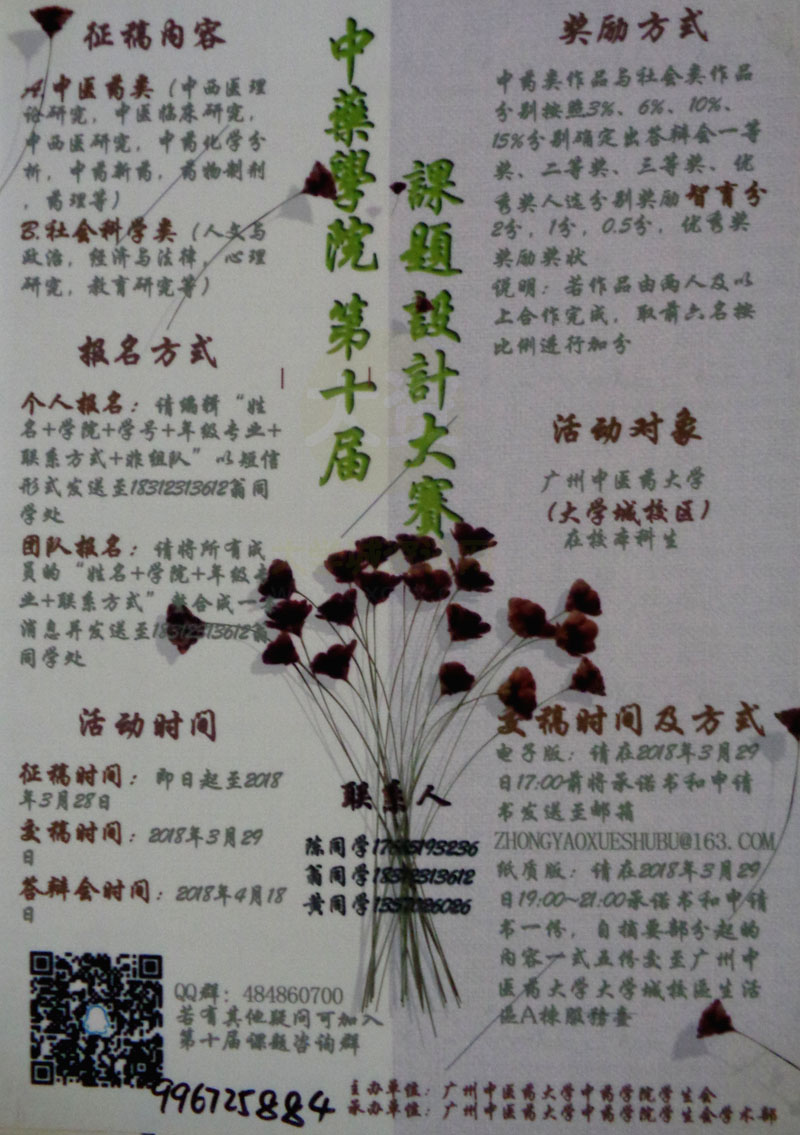 征稿内容
A.中医药类（中西医理
论研究，中医临床研究，
中西医研究，中药化学分
析，中药新药，药物制剂
，药理等）
B.社会科学类（人文与
政治，经济与法律，心理
研究，教育研究等）
报名方式
个人报名：请编辑“姓
名+学院+学号+年级专业+
联系方式+非组队”以短信
形式发送至18312313612翁同
学处
团队报名：请将所有成
员的“姓名+学院+年级专
业+联系方式”整合成一条
消息并发送至18312313612翁
同学处
活动时间
征稿时间：即日起至2018
年3月28日
交稿时间：2018年3月29
日
答辩会时间：2018年4月18
日
QQ群：484860700
若有其他疑问可加入
第十届课题咨询群
996725884
中藥學院 第十届
課題設計大賽
联系人
陈同学
翁同学18312313612
黄同学
奖励方式
中药类作品与社会类作品
分别按照3%、6%、10%、
15%分别确定出答辩会一等
奖、二等奖、三等奖、优
秀奖人选分别奖励 智育分
2分，1分，0.5分，优秀奖
奖励奖状
说明：若作品由两人及以
上合作完成，取前六名按
比例进行加分
活动对象
广州中医药大学
（大学城校区）
在校本科生
交稿时间及方式
电子版：请在2018年3月29
日17:00前将承诺书和申请
书发送至邮箱
ZHONGYAOXUESHUBU@163.COM
纸质版：请在2018年3月29
日19:00~21:00承诺书和申请
书一份，自摘要部分起的
内容一式五份交至广州中
医药大学大学城校区生活
区A栋服务台
主办单位：广州中医药大学中药学院学生会
承办单位：广州中医药大学中药学院学生会学术部